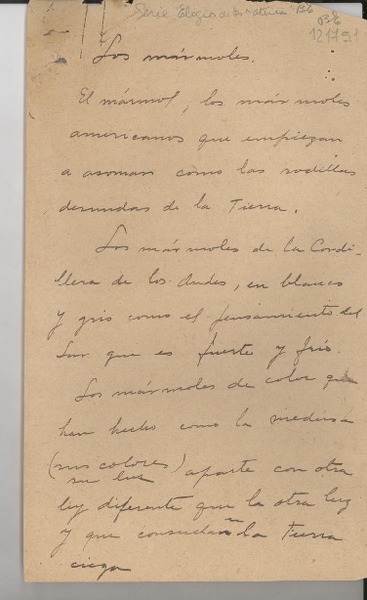 Serie Elogios de las materias B6
B6
121791
Los mármoles.
El mármol, los mármoles
americanos que empiezan
a asomar como las rodillas
desnudas de la Tierra.
Los mármoles de la Cordi-
llera de los Andes, en blanco
y gris como el pensamiento del
Sur que es fuerte y frío.
Los mármoles de color que
han hecho como la medusa
(sus colores) aparte con otra
su luz
ley diferente que la otra luz
y que consuelan la Tierra
ciega